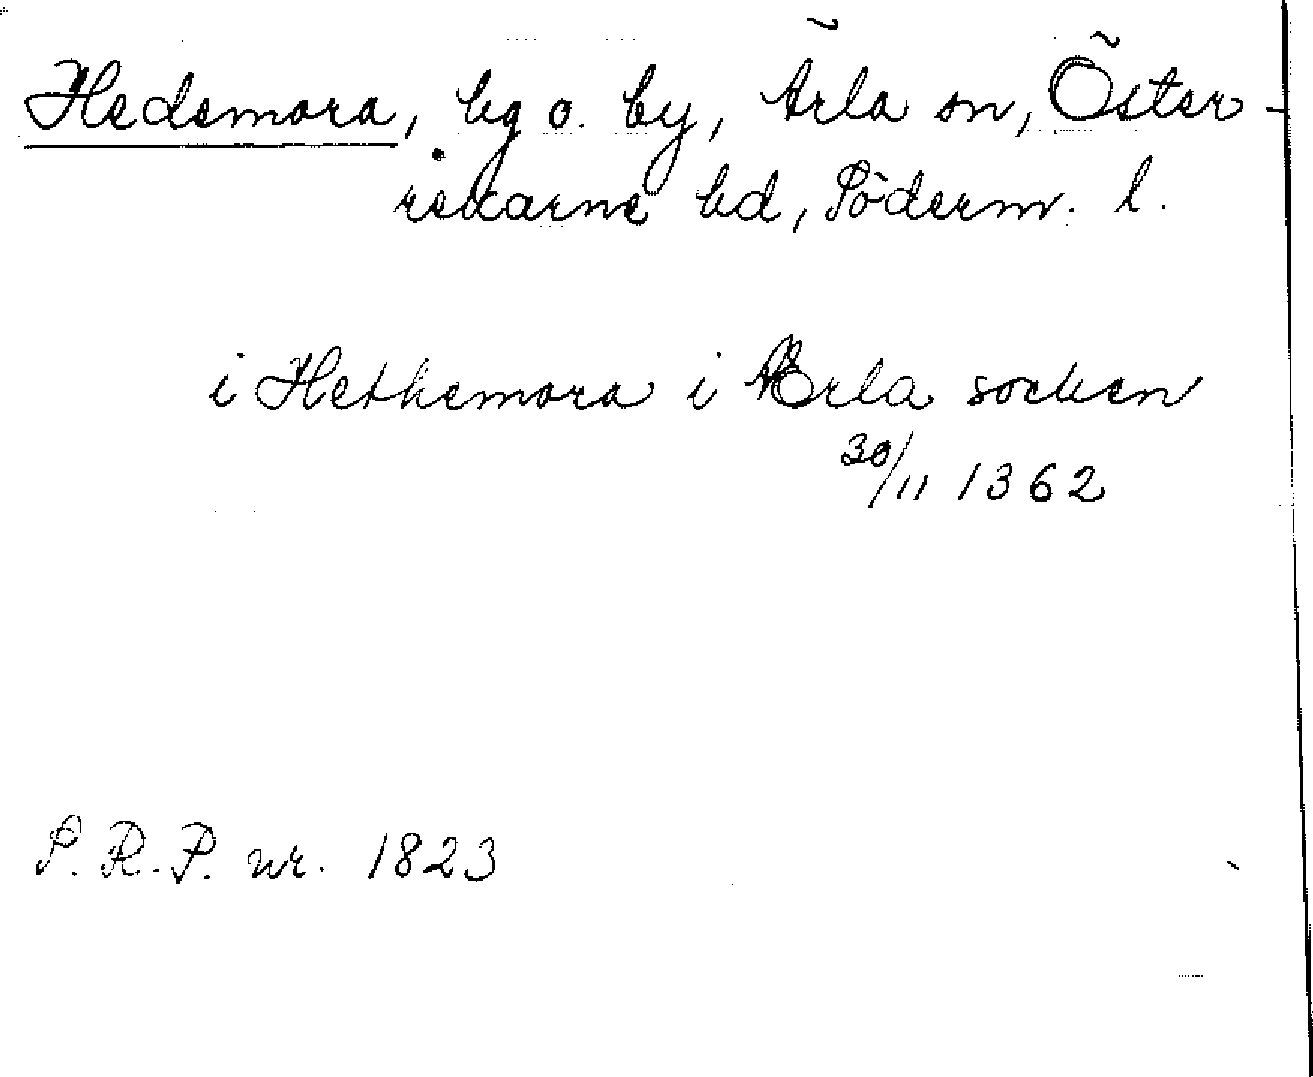 Hedemora, bg o. by, Ärla sn, Öster-
rekarne hd, Söderm. l.
i Hethemora i Ærla socken
30/11 1362
S. R. P. nr. 1823